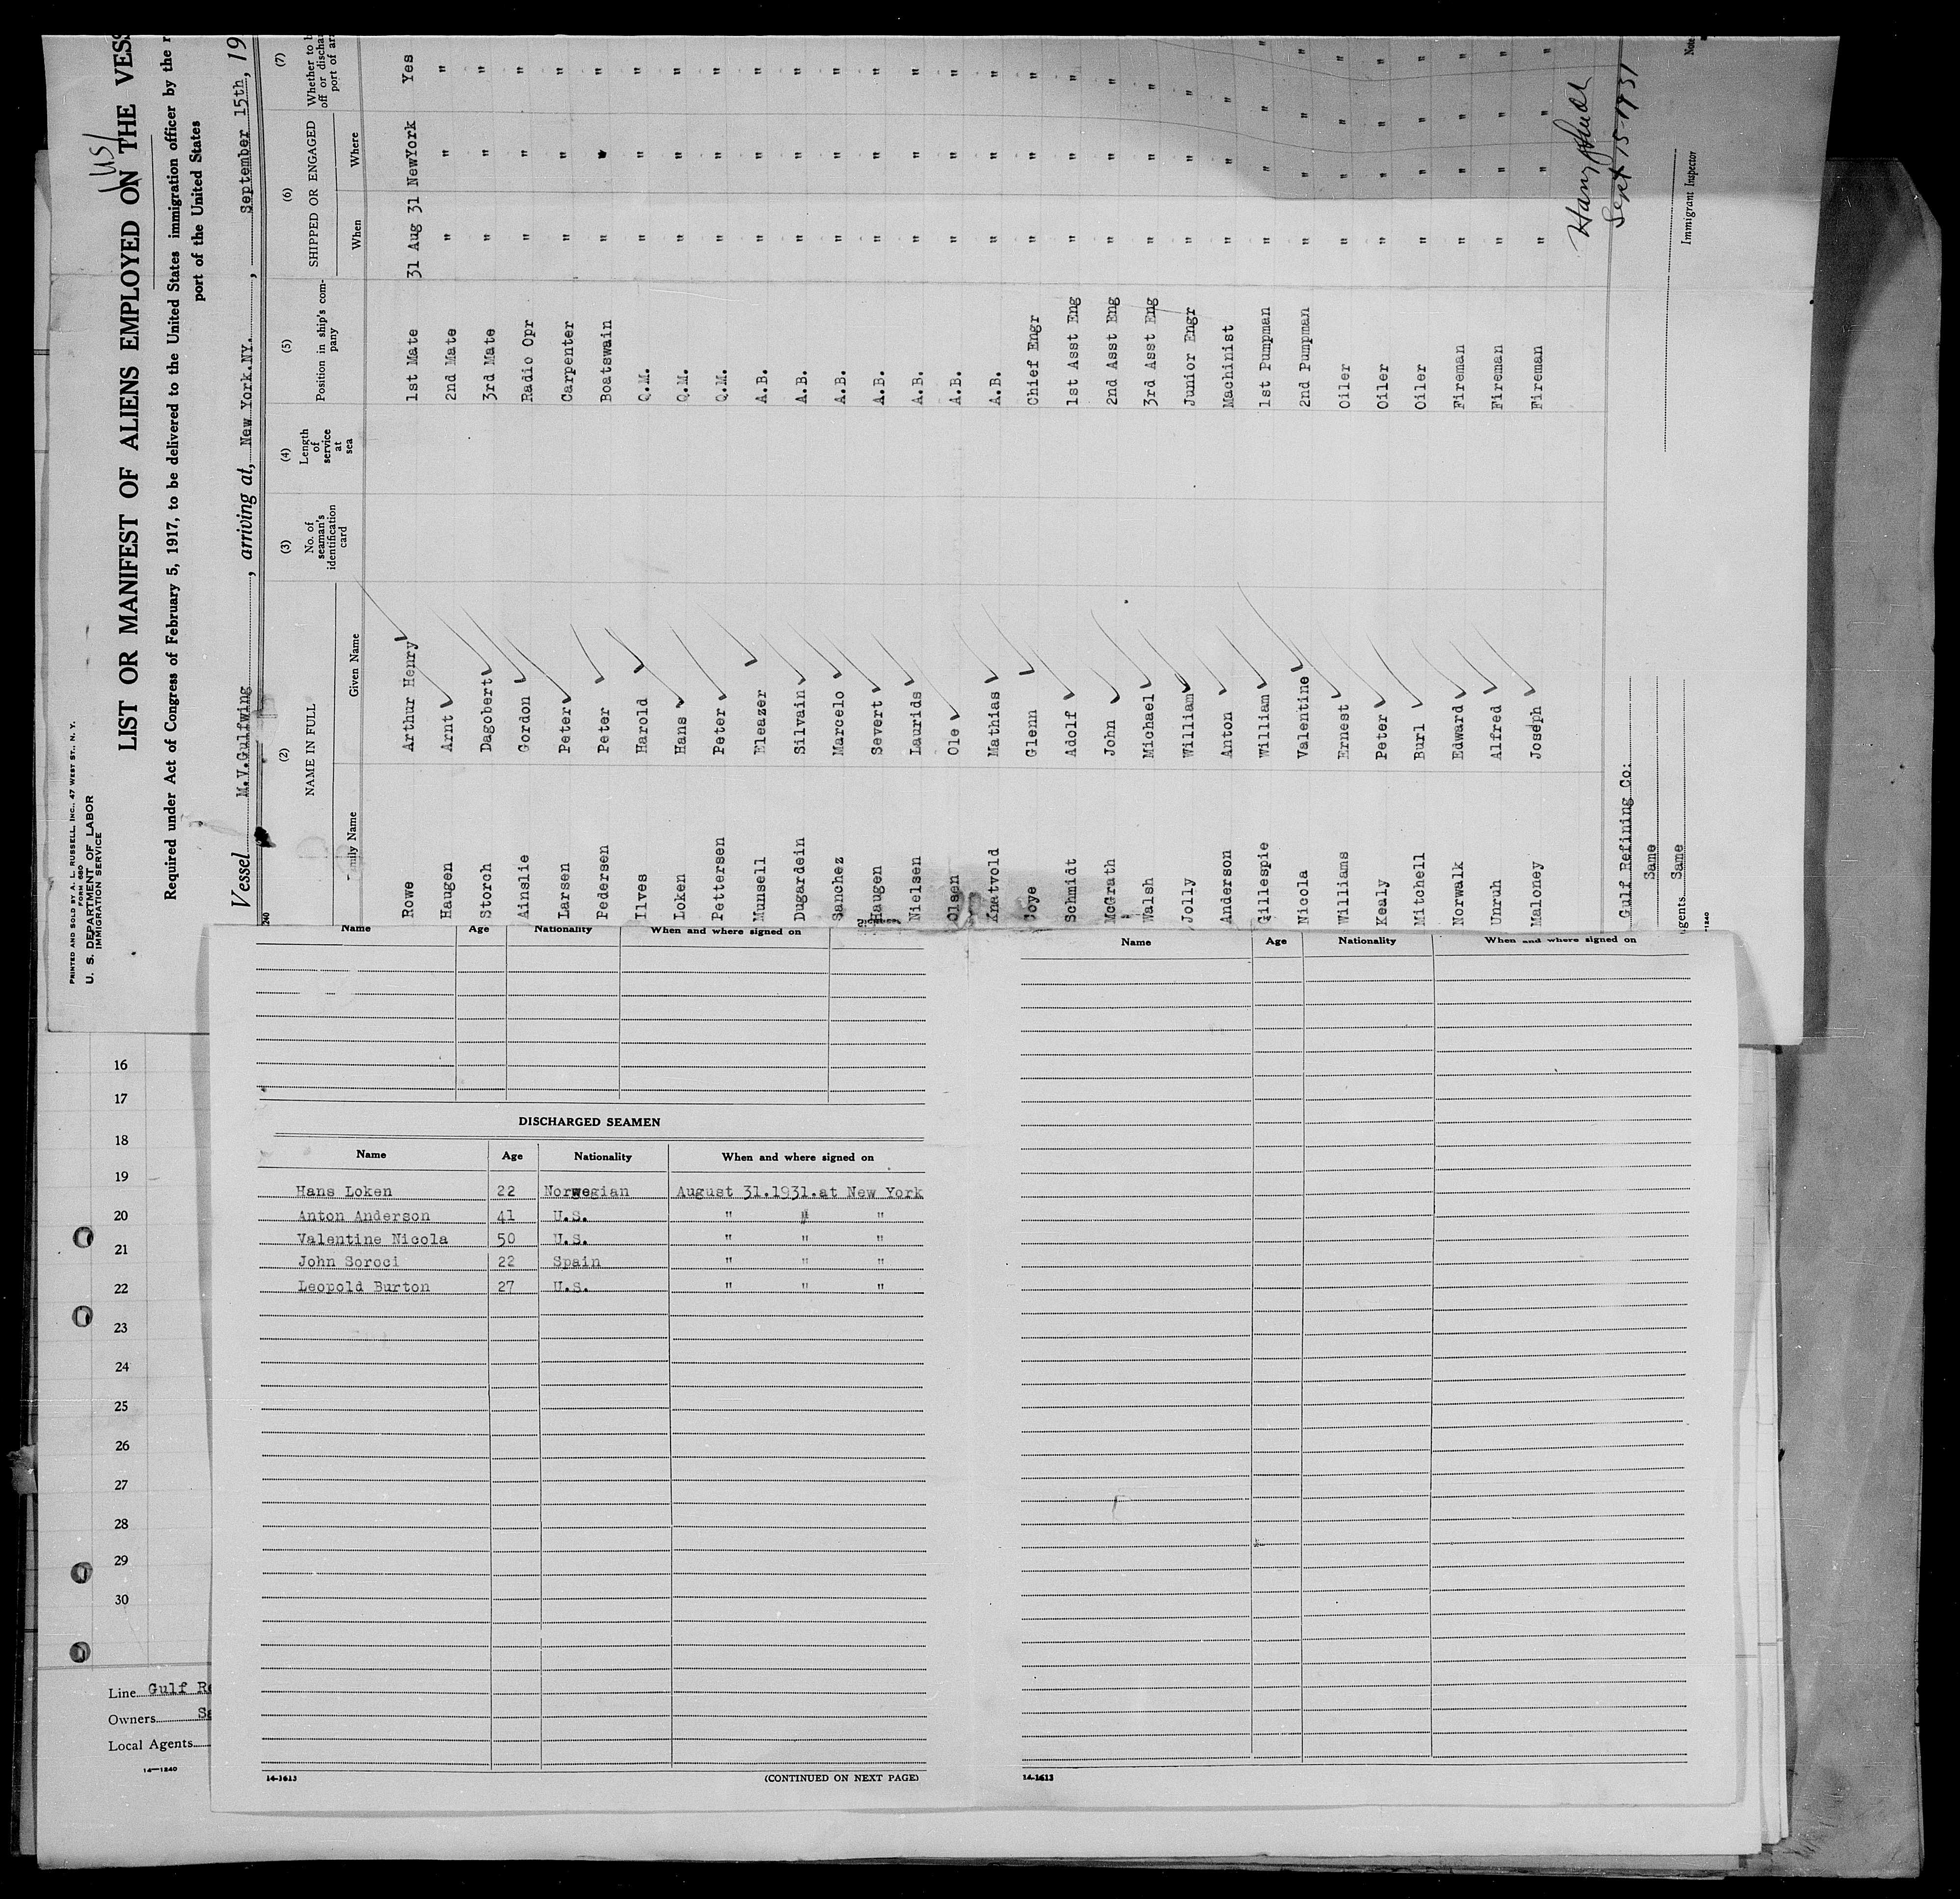 PRINTED AND SOLD BY A. L. RUSSELL, INC., 47 WEST ST., N. Y.
FORM 680
U. S. DEPARTMENT OF LABOR
IMMIGRATION SERVICE
LIST OR MANIFEST OF ALIENS EMPLOYED ON THE VESS
Required under Act of Congress of February 5, 1917, to be delivered to the United States immigration officer by the r
port of the United States
Vessel M.V.Gulfwing, arriving at, New York.NY., September 15th, 19
(2) (3) (4) (5) (6) (7)
NAME IN FULL No. of seaman's identification card Length of service at sea Position in ship's company SHIPPED OR ENGAGED Whether to b off or discha port of arr
mily Name Given Name When Where
Rowe Arthur Henry 1st Mate 31 Aug 31 NewYork Yes
Haugen Arnt 2nd Mate " " "
Storch Dagobert 3rd Mate " " "
Ainslie Gordon Radio Opr " " "
Larsen Peter Carpenter " " "
Pedersen Peter Boatswain " " "
Ilves Harold Q.M. " " "
Loken Hans Q.M. " " "
Pettersen Peter Q.M. " " "
Munsell Eleazer A.B. " " "
Dugardein Silvain A.B. " " "
Sanchez Marcelo A.B. " " "
Haugen Severt A.B. " " "
Nielsen Laurids A.B. " " "
Olsen Ole A.B. " " "
Knatvold Mathias A.B. " " "
Coye Glenn Chief Engr " " "
Schmidt Adolf 1st Asst Eng " " "
McGrath John 2nd Asst Eng " " "
Walsh Michael 3rd Asst Eng " " "
Jolly William Junior Engr " " "
Anderson Anton Machinist " " "
Gillespie William 1st Pumpman " " "
Nicola Valentine 2nd Pumpman " " "
Williams Ernest Oiler " " "
Kealy Peter Oiler " " "
Mitchell Burl Oiler " " "
Norwalk Edward Fireman " " "
Unruh Alfred Fireman " " "
Maloney Joseph Fireman " " "
Sept 15-1931
Gulf Refining Co:
Same
gents Same
Immigrant Inspector
Note
Name Age Nationality When and where signed on
Name Age Nationality When and where signed on
DISCHARGED SEAMEN
Name Age Nationality When and where signed on
Hans Loken 22 Norwegian August 31.1931.at New York
Anton Anderson 41 U.S. " " "
Valentine Nicola 50 U.S. " " "
John Soroci 22 Spain " " "
Leopold Burton 27 U.S. " " "
14-1613
(CONTINUED ON NEXT PAGE)
14-1613
16
17
18
19
20
21
22
23
24
25
26
27
28
29
30
Line Gulf Re
Owners Sa
Local Agents
14—1240